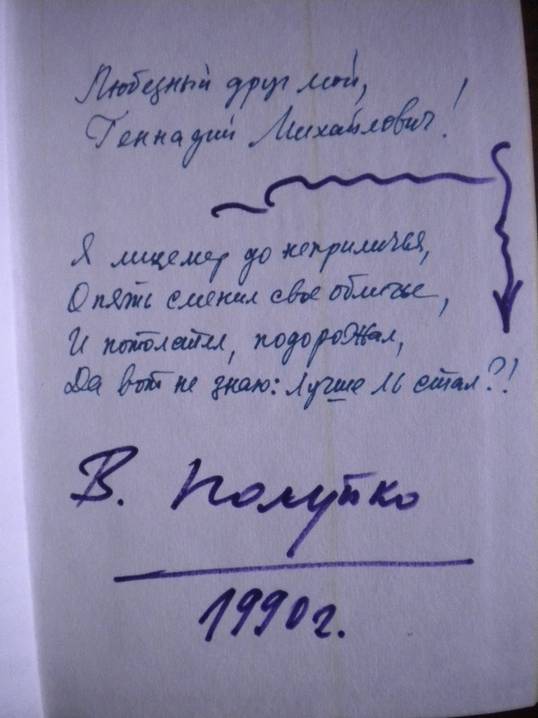 Любезный друг мой,
Геннадий Михайлович!
Я лицемер до неприличья,
Опять сменил свое обличье,
И потолстел, подорожал,
Да вот не знаю: лучше ль стал?!
В. Полупко
1990г.